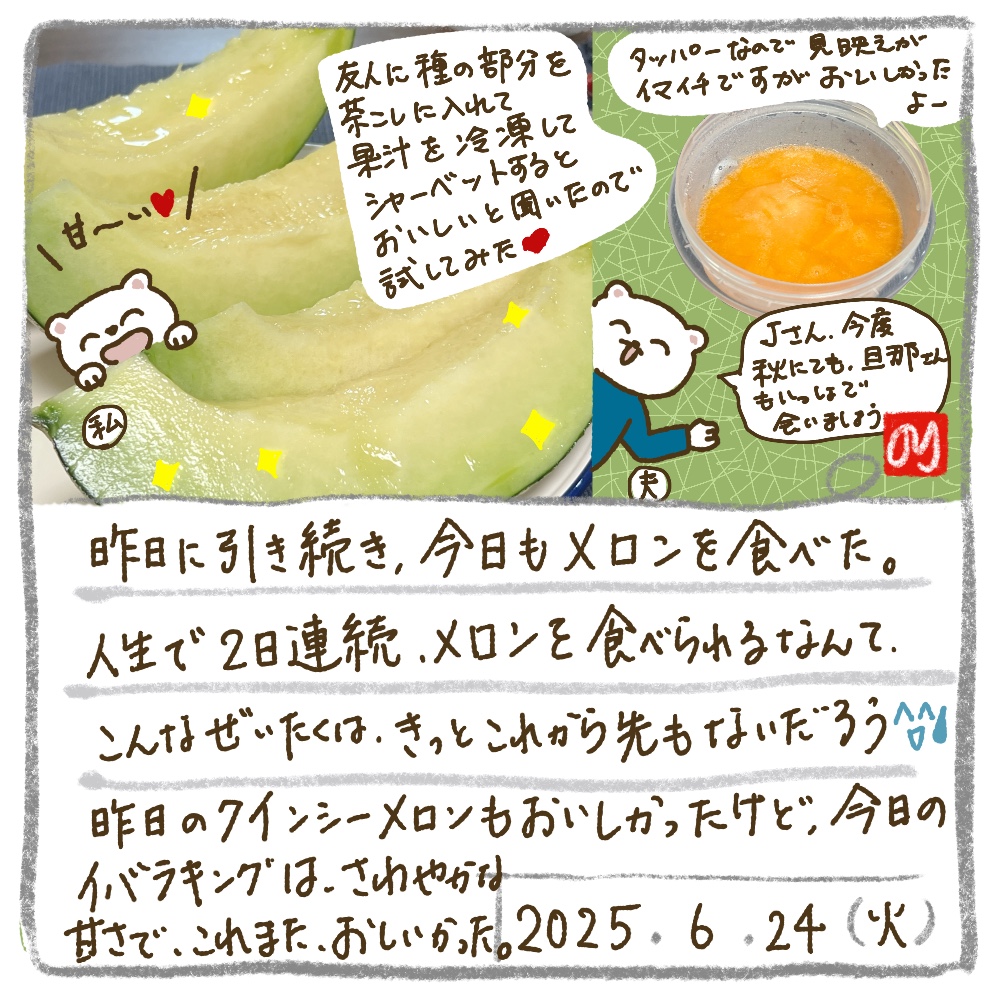 友人に種の部分を
茶こしに入れて
果汁を冷凍して
シャーベットすると
おいしいと聞いたので
試してみた
タッパーなので見映えが
イマイチですがおいしかった
よー
甘〜い
私
Jさん、今度
秋にでも、旦那さん
もいっしょで
会いましょう
夫
昨日に引き続き、今日もメロンを食べた。
人生で2日連続、メロンを食べられるなんて、
こんなぜいたくは、きっとこれから先もないだろう
昨日のクインシーメロンもおいしかったけど、今日の
イバラキングは、さわやかな
甘さで、これまた、おいしかった。
2025.6.24(火)